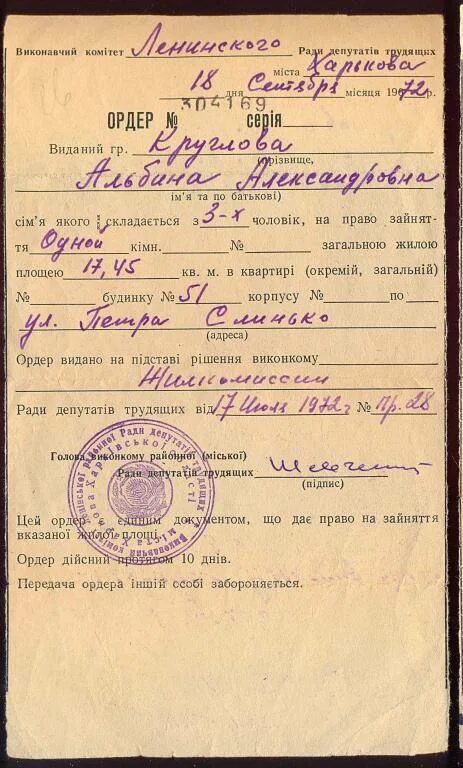 Виконавчий комітет Ленинского Ради депутатів трудящих
міста Харькова
18 дня Сентября місяця 1972 р.
304169
ОРДЕР № серія
Виданий гр. Круглова
(прізвище,
Альбина Александровна
ім'я та по батькові)
сім'я якого складається з 3-х чоловік, на право зайнят-
тя Одной кімн. № загальною жилою
площею 17,45 кв. м. в квартирі (окремій, загальній)
№ будинку № 51 корпусу № по
ул. Петра Слинько
(адреса)
Ордер видано на підставі рішення виконкому
Жилкомиссии
Ради депутатів трудящих від 17 Июля 1972 г № пр. 28
Голова виконкому районної (міської)
Ради депутатів трудящих
(підпис)
Цей ордер є єдиним документом, що дає право на зайняття
вказаної жилої площі.
Ордер дійсний протягом 10 днів.
Передача ордера іншій особі забороняється.